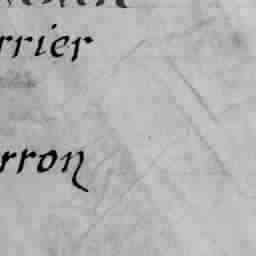 rrier
rron